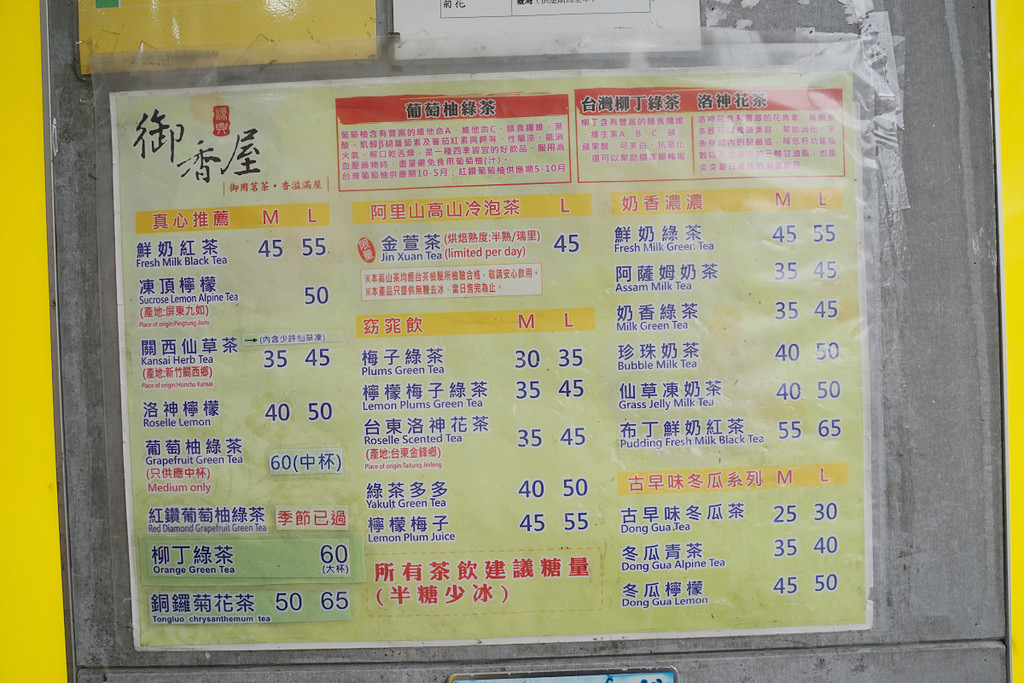 菊花
源興
御香屋
御用茗茶・香溢滿屋
葡萄柚綠茶
葡萄柚含有豐富的維他命A、維他命C、膳食纖維、葉
酸、肌醇β胡蘿蔔素及蕃茄紅素與鉀等，性屬涼，能消
火氣、解口乾舌燥，是一種四季皆宜的好飲品，服用高
血壓藥物時，盡量避免食用葡萄柚(汁)。
台灣葡萄柚供應期10-5月；紅鑽葡萄柚供應期5-10月
台灣柳丁綠茶 洛神花茶
柳丁含有豐富的膳食纖維
、維生素A、B、C、磷、
蘋果酸、可美白、抗氧化
真心推薦 M L
鮮奶紅茶 45 55
Fresh Milk Black Tea
凍頂檸檬 50
Sucrose Lemon Alpine Tea
(產地:屏東九如)
Place of origin:Pingtung Jiuru
關西仙草茶 →(內含少許仙草凍)
Kansai Herb Tea 35 45
(產地:新竹關西鄉)
Place of origin:Hsinchu Kansai
洛神檸檬 40 50
Roselle Lemon
葡萄柚綠茶
Grapefruit Green Tea 60(中杯)
(只供應中杯)
Medium only
紅鑽葡萄柚綠茶 季節已過
Red Diamond Grapefruit Green Tea
柳丁綠茶 60
Orange Green Tea (大杯)
銅鑼菊花茶 50 65
Tongluo chrysanthemum tea
阿里山高山冷泡茶 L
限量 金萱茶 (烘焙熟度:半熟/瑞里) 45
Jin Xuan Tea (limited per day)
※本高山茶均經台茶檢驗所檢驗合格，敬請安心飲用。
※本產品只提供無糖去冰，當日售完為止。
窈窕飲 M L
梅子綠茶 30 35
Plums Green Tea
檸檬梅子綠茶 35 45
Lemon Plums Green Tea
台東洛神花茶 35 45
Roselle Scented Tea
(產地:台東金鋒鄉)
Place of origin:Taitung Jinfeng
綠茶多多 40 50
Yakult Green Tea
檸檬梅子 45 55
Lemon Plum Juice
所有茶飲建議糖量
(半糖少冰)
奶香濃濃 M L
鮮奶綠茶 45 55
Fresh Milk Green Tea
阿薩姆奶茶 35 45
Assam Milk Tea
奶香綠茶 35 45
Milk Green Tea
珍珠奶茶 40 50
Bubble Milk Tea
仙草凍奶茶 40 50
Grass Jelly Milk Tea
布丁鮮奶紅茶 55 65
Pudding Fresh Milk Black Tea
古早味冬瓜系列 M L
古早味冬瓜茶 25 30
Dong Gua Tea
冬瓜青茶 35 40
Dong Gua Alpine Tea
冬瓜檸檬 45 50
Dong Gua Lemon